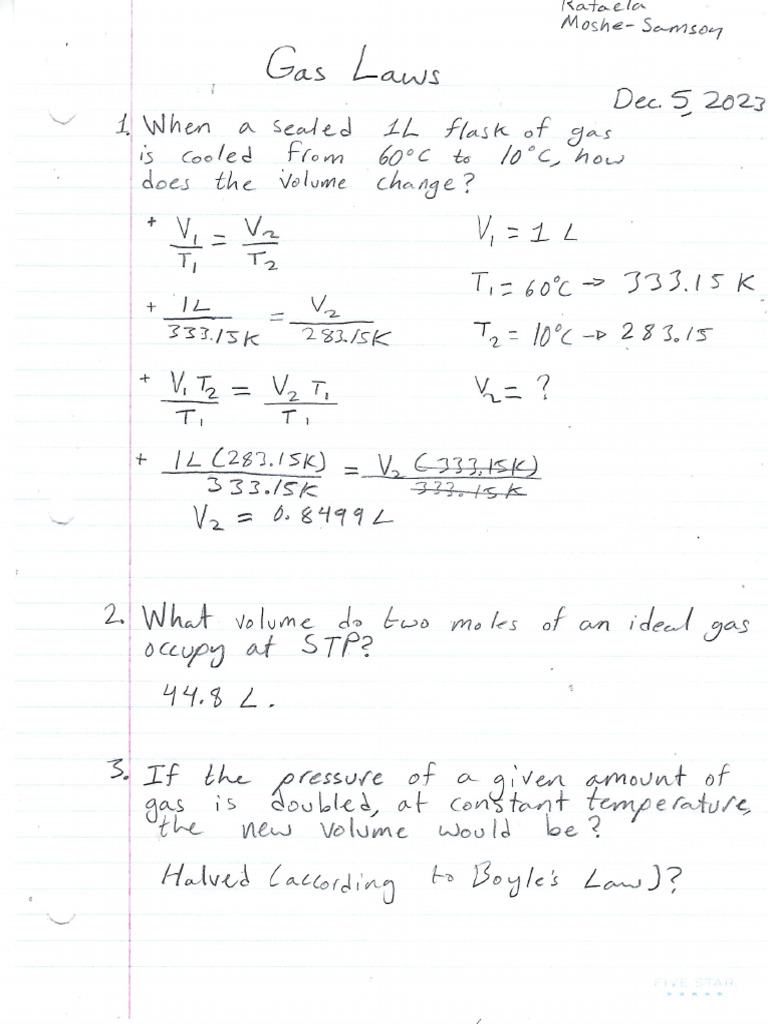 Rafaela
Moshe-Samson
Gas Laws
Dec. 5, 2023
1. When a sealed 1L flask of gas
is cooled from 60°C to 10°C, how
does the volume change?
+ V₁/T₁ = V₂/T₂
V₁ = 1 L
T₁ = 60°C → 333.15 K
+ 1L/333.15K = V₂/283.15K
T₂ = 10°C → 283.15
+ V₁ T₂/T₁ = V₂ T₁/T₁
V₂ = ?
+ 1L (283.15K)/333.15K = V₂ (333.15K)/333.15K
V₂ = 0.8499 L
2. What volume do two moles of an ideal gas
occupy at STP?
44.8 L.
3. If the pressure of a given amount of
gas is doubled, at constant temperature,
the new volume would be?
Halved (according to Boyle's Law)?
FIVE STAR